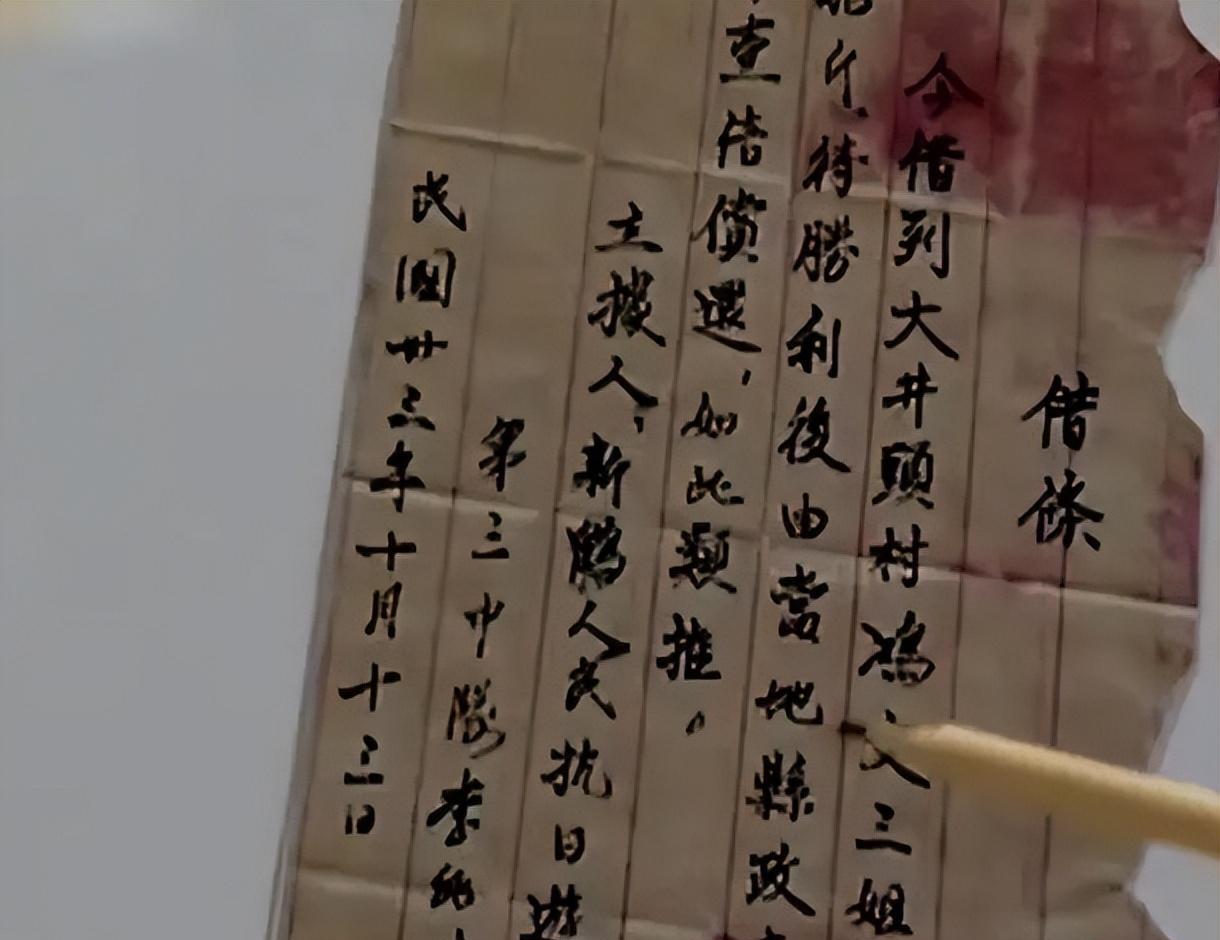 借條
今借到大井頭村馮文三姐
斤、待勝利後由當地縣政
直信償還，如此類推。
主撥人、新鶴人民抗日遊
第三中隊李
民國卅三年十月十三日